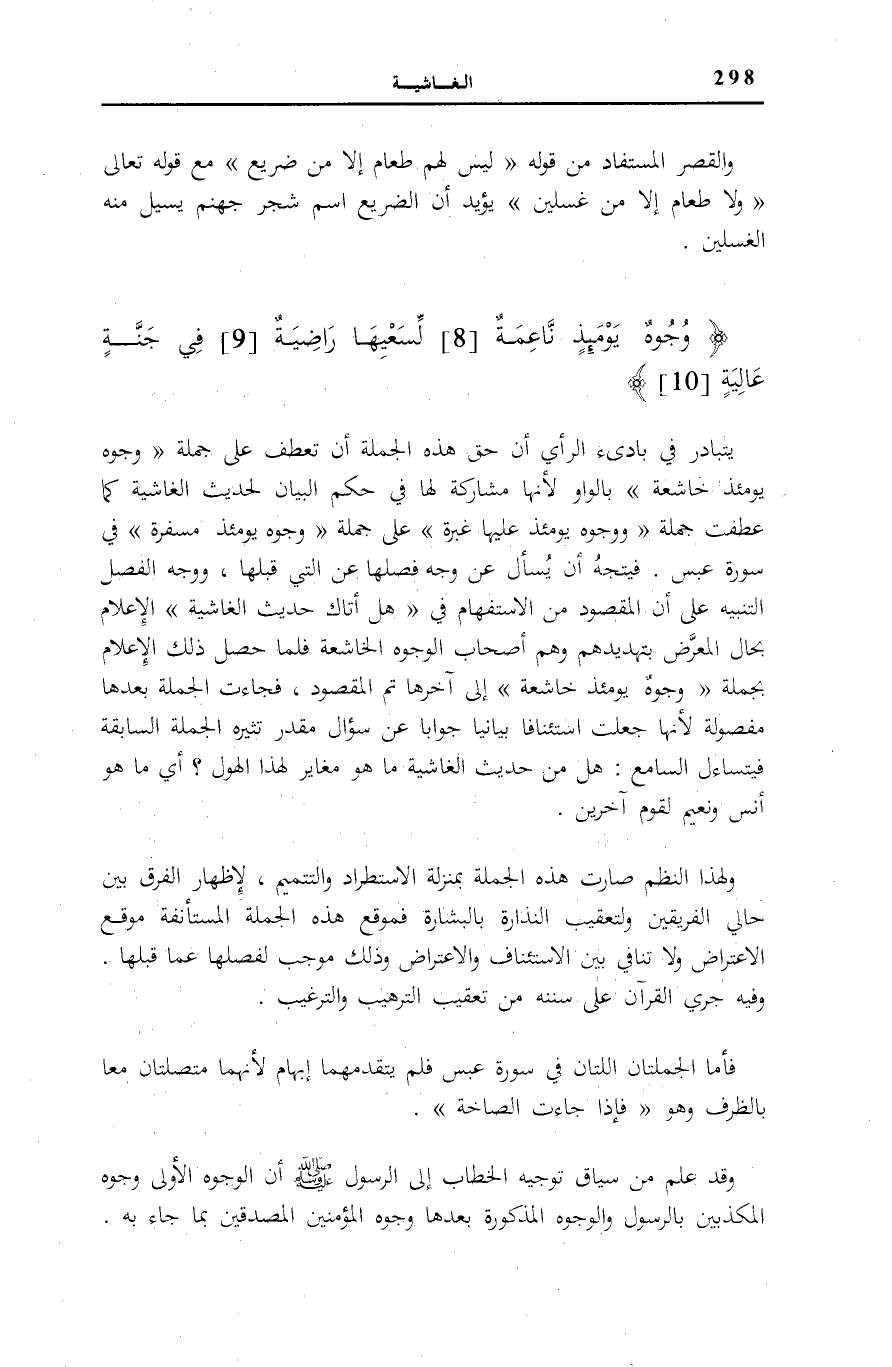 298
الغـاشيـة
والقصر المستفاد من قوله « ليس لهم طعام إلا من ضريع » مع قوله تعالى
« ولا طعام إلا من غسلين » يؤيد أن الضريع اسم شجر جهنم يسيل منه
الغسلين .
﴿ وُجُوهٌ يَوْمَئِذٍ نَّاعِمَةٌ [8] لِّسَعْيِهَا رَاضِيَةٌ [9] فِي جَنَّةٍ
عَالِيَةٍ [10] ﴾
يتبادر في بادىء الرأي أن حق هذه الجملة أن تعطف على جملة « وجوه
يومئذ خاشعة » بالواو لأنها مشاركة لها في حكم البيان لحديث الغاشية كما
عطفت جملة « ووجوه يومئذ عليها غبرة » على جملة « وجوه يومئذ مسفرة » في
سورة عبس . فيتجهُ أن يُسأل عن وجه فصلها عن التي قبلها ، ووجه الفصل
التنبيه على أن المقصود من الاستفهام في « هل أتاك حديث الغاشية » الإعلام
بحال المعرَّض بتهديدهم وهم أصحاب الوجوه الخاشعة فلما حصل ذلك الإعلام
بجملة « وجوهٌ يومئذ خاشعة » إلى آخرها تم المقصود ، فجاءت الجملة بعدها
مفصولة لأنها جعلت استئنافا بيانيا جوابا عن سؤال مقدر تثيره الجملة السابقة
فيتساءل السامع : هل من حديث الغاشية ما هو مغاير لهذا الهول ؟ أي ما هو
أنس ونعيم لقوم آخرين .
ولهذا النظم صارت هذه الجملة بمنزلة الاستطراد والتتميم ، لإظهار الفرق بين
حالي الفريقين ولتعقيب النذارة بالبشارة فموقع هذه الجملة المستأنفة موقع
الاعتراض ولا تنافي بين الاستئناف والاعتراض وذلك موجب لفصلها عما قبلها .
وفيه جري القرآن على سننه من تعقيب الترهيب والترغيب .
فأما الجملتان اللتان في سورة عبس فلم يتقدمهما إبهام لأنهما متصلتان معا
بالظرف وهو « فإذا جاءت الصاخة » .
وقد علم من سياق توجيه الخطاب إلى الرسول ﷺ أن الوجوه الأولى وجوه
المكذبين بالرسول والوجوه المذكورة بعدها وجوه المؤمنين المصدقين بما جاء به .